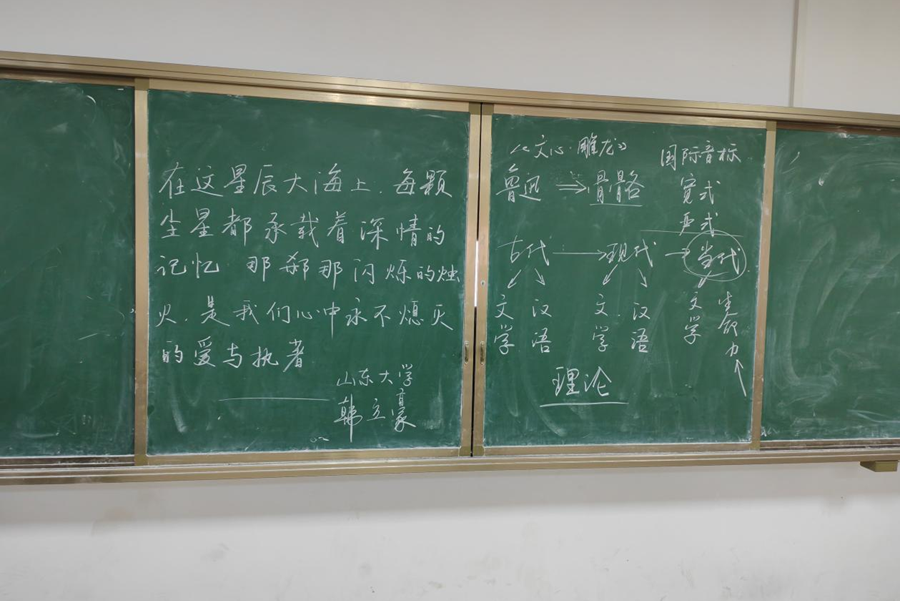 在这星辰大海上,每颗
尘星都承载着深情的
记忆 那刹那闪烁的烛
火,是我们心中永不熄灭
的爱与执着
山东大学
韩立豪
《文心·雕龙》
国际音标
鲁迅 ⇒ 骨骼
宽式
严式
古代 → 现代 → 当代
文学 汉语 文学 汉语 文学 生命力
理论